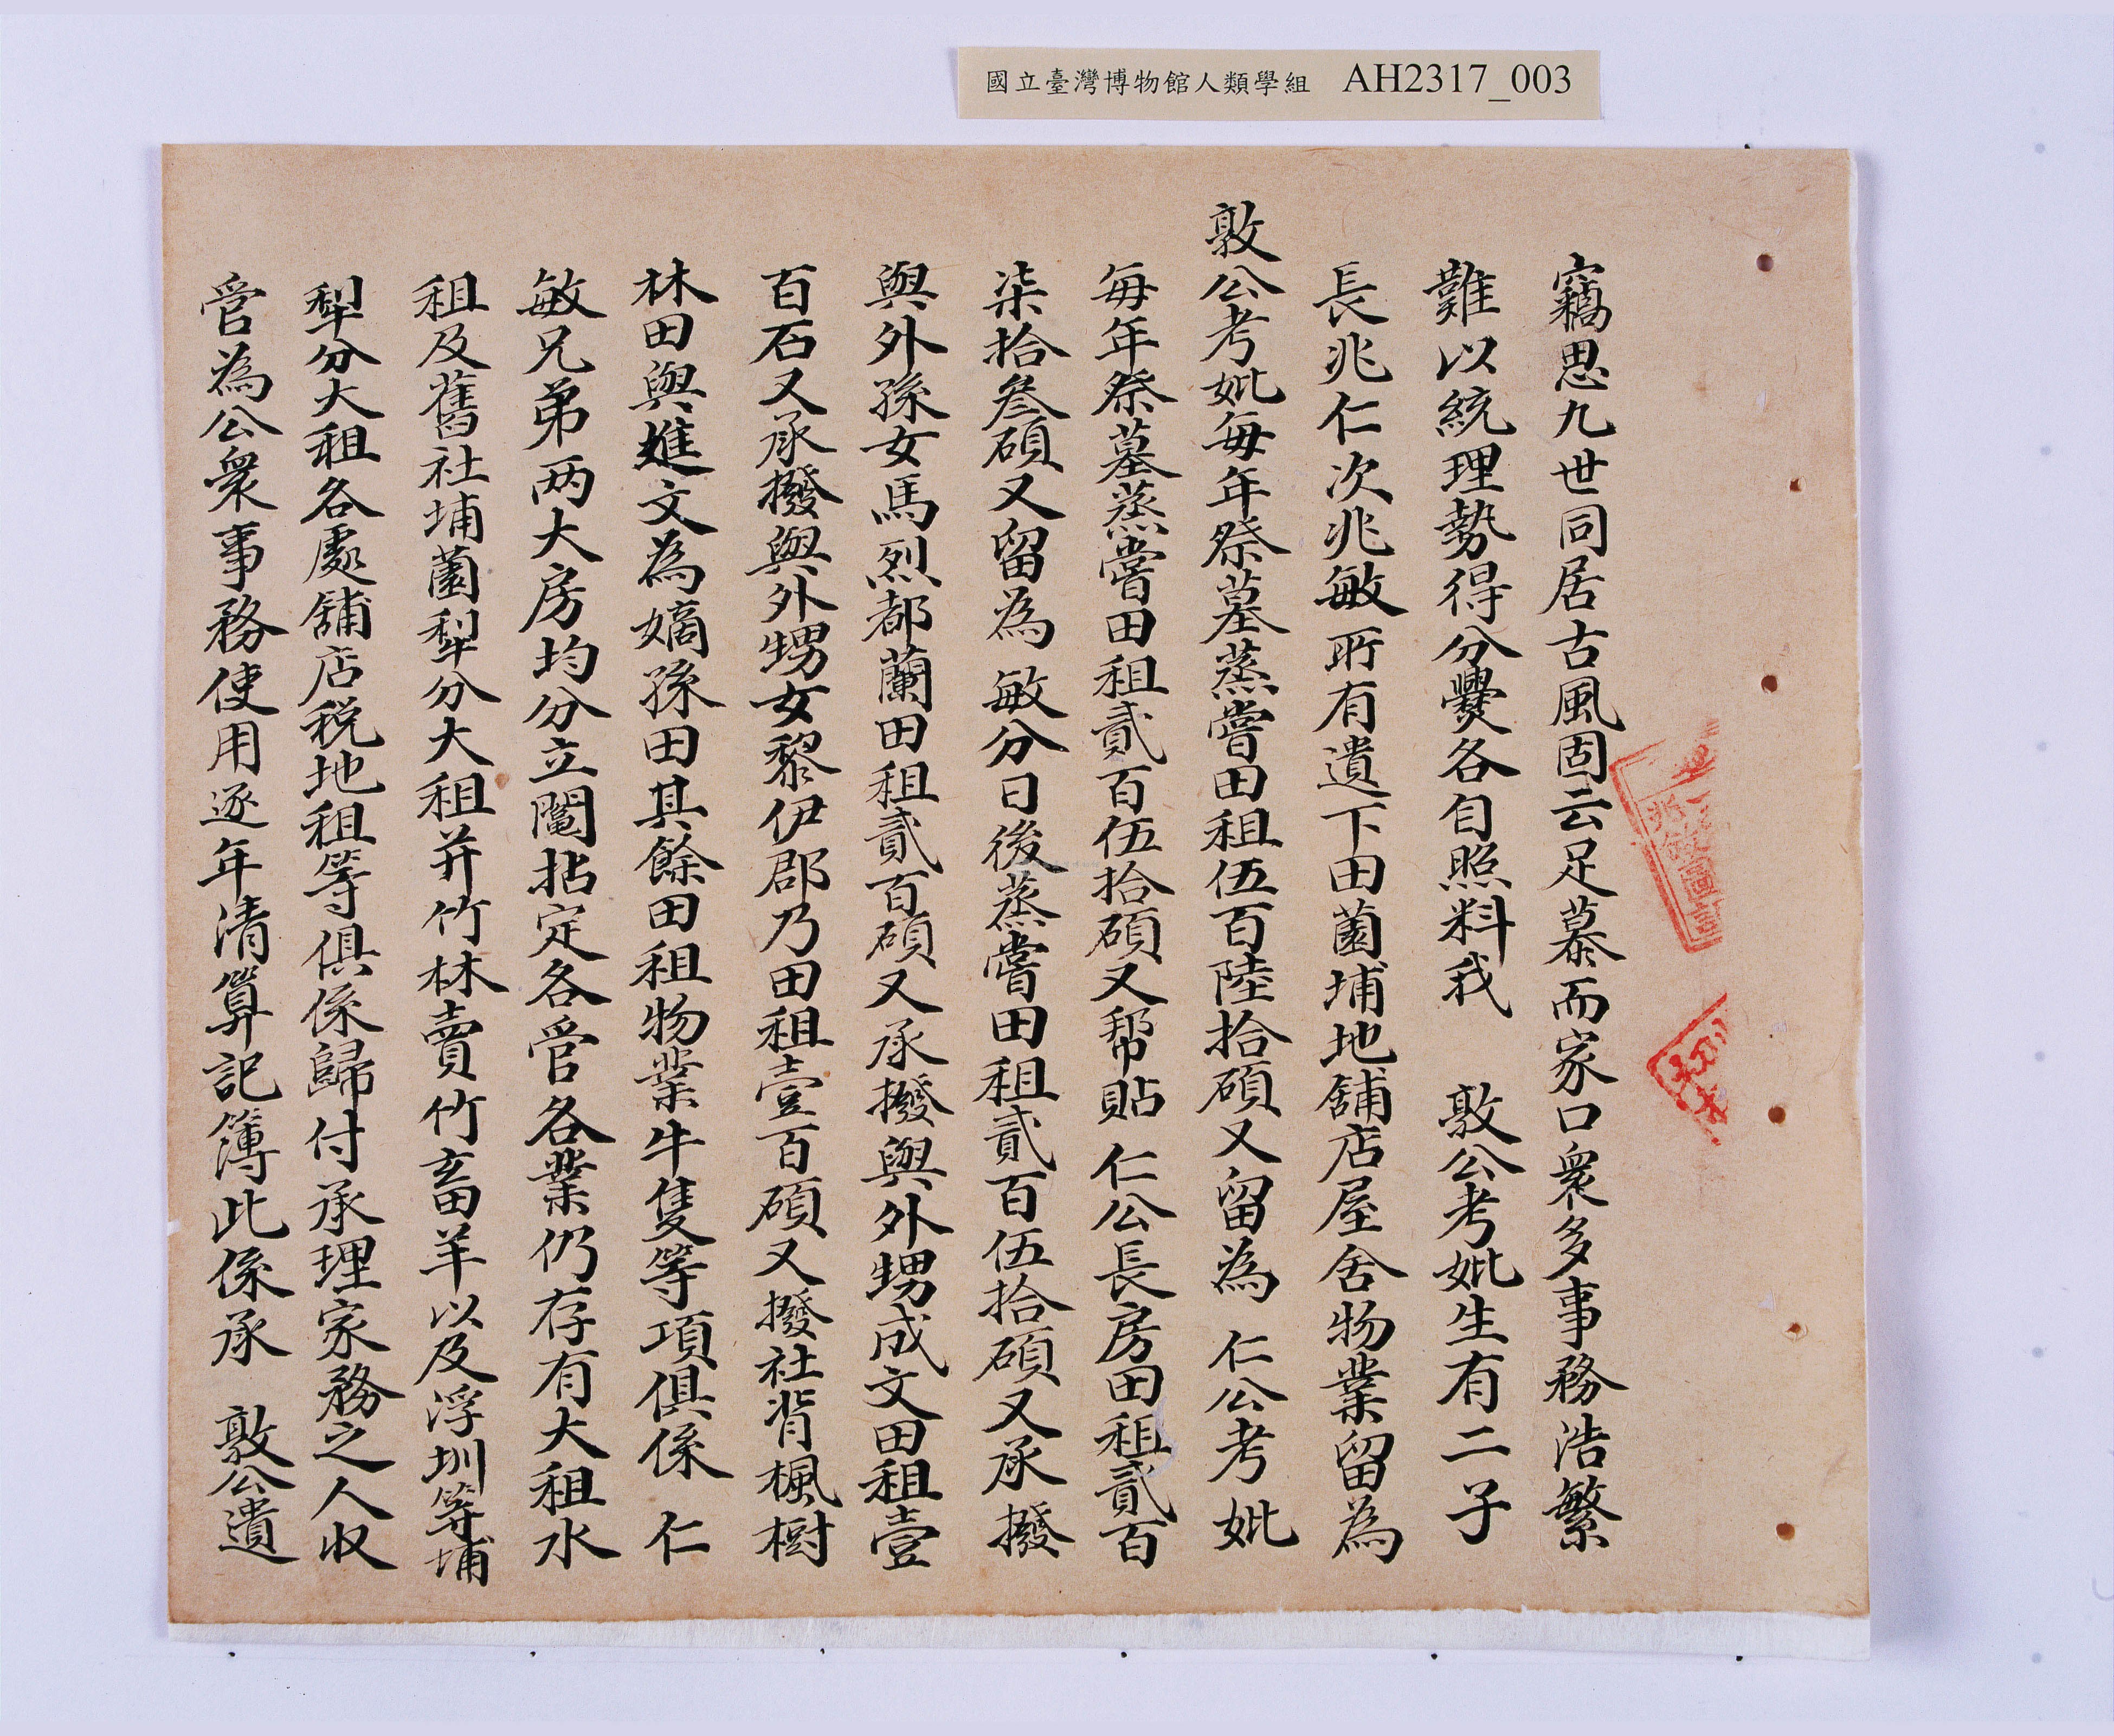 國立臺灣博物館人類學組 AH2317_003
竊思九世同居古風固云足慕而家口衆多事務浩繁
難以統理勢得分爨各自照料我 敦公考妣生有二子
長兆仁次兆敏所有遺下田薗埔地舖店屋舍物業留為
敦公考妣每年祭墓蒸嘗田租伍百陸拾碩又留為 仁公考妣
每年祭墓蒸嘗田租貳百伍拾碩又帮貼 仁公長房田租貳百
柒拾叁碩又留為 敏分日後蒸嘗田租貳百伍拾碩又承撥
與外孫女馬烈都蘭田租貳百碩又承撥與外甥成文田租壹
百石又承撥與外甥女黎伊郡乃田租壹百碩又撥社背楓樹
林田與進文為嫡孫田其餘田租物業牛隻等項俱係 仁
敏兄弟两大房均分立鬮拈定各管各業仍存有大租水
租及舊社埔薗犁分大租并竹林賣竹畜羊以及浮圳等埔
犁分大租各處舖店稅地租等俱係歸付承理家務之人收
管為公衆事務使用逐年清算記簿此係承 敦公遺